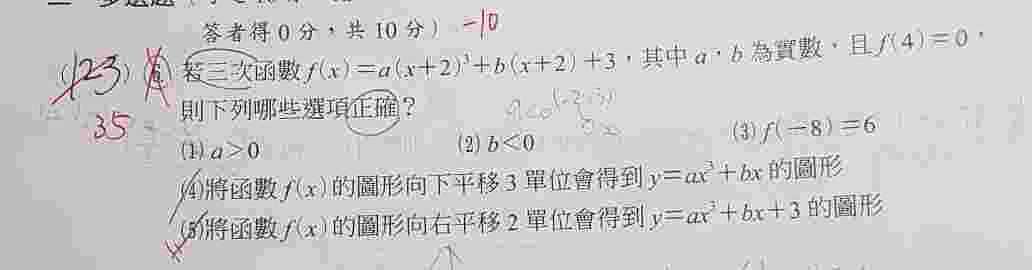 答者得0分，共10分） -10
(123) 若三次函數f(x)=a(x+2)³+b(x+2)+3，其中a，b為實數，且f(4)=0，
35 則下列哪些選項正確？
(1) a>0 (2) b<0 (3) f(-8)=6
(4)將函數f(x)的圖形向下平移3單位會得到y=ax³+bx的圖形
(5)將函數f(x)的圖形向右平移2單位會得到y=ax³+bx+3的圖形